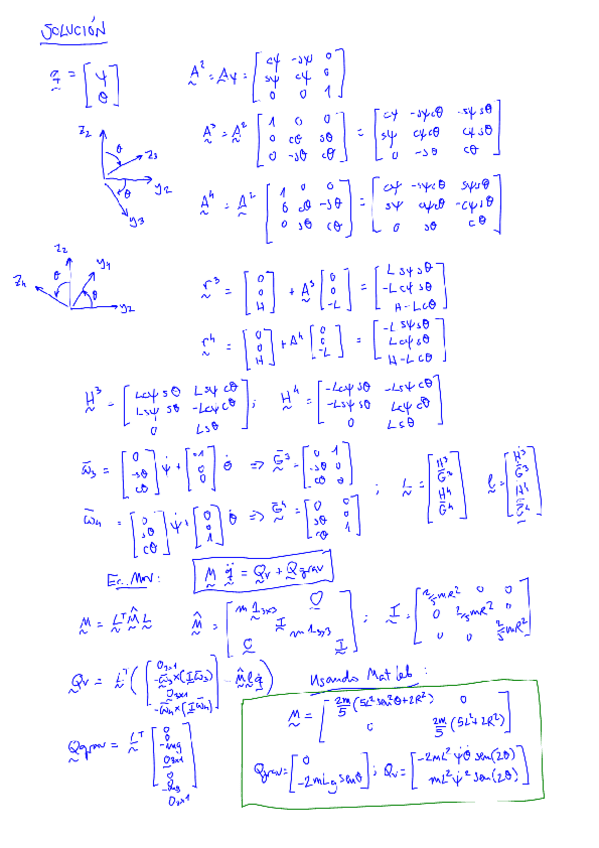 SOLUCIÓN
q = [ψ; θ]
A² = Aψ = [cψ -sψ 0; sψ cψ 0; 0 0 1]
A³ = A² [1 0 0; 0 cθ sθ; 0 -sθ cθ] = [cψ -sψcθ -sψsθ; sψ cψcθ cψsθ; 0 -sθ cθ]
z₂ θ z₃ y₂ θ y₃
A⁴ = A² [1 0 0; 0 cθ -sθ; 0 sθ cθ] = [cψ -sψcθ sψsθ; sψ cψcθ -cψsθ; 0 sθ cθ]
z₂ y₄ z₄ θ θ y₂
r³ = [0; 0; H] + A³ [0; 0; -L] = [Lsψsθ; -Lcψsθ; H-Lcθ]
r⁴ = [0; 0; H] + A⁴ [0; 0; -L] = [-Lsψsθ; Lcψsθ; H-Lcθ]
H³ = [Lcψsθ Lsψcθ; Lsψsθ -Lcψcθ; 0 Lsθ]; H⁴ = [-Lcψsθ -Lsψcθ; -Lsψsθ Lcψcθ; 0 Lsθ]
ω̄₃ = [0; -sθ; cθ] ψ̇ + [-1; 0; 0] θ̇ => Ḡ³ = [0 1; -sθ 0; cθ 0]; L = [H³; Ḡ³; H⁴; Ḡ⁴]
ω̄₄ = [0; sθ; cθ] ψ̇ + θ̇ => Ḡ⁴ =
Ec. Mov: M q̈ = Qv + Qgrav
M = Lᵀ M̂ L M̂ = [m 1₃ₓ₃ 0; I; m 1₃ₓ₃; 0 I]; I = [2/5mR² 0 0; 0 2/5mR² 0; 0 0 2/5mR²]
Qv = Lᵀ ([0₃ₓ₁; -ω̄₃×(Iω̄₃); 0₃ₓ₁; -ω̄₄×(Iω̄₄)] - M̂ l q̇) Usando Matlab:
M = [2m/5 (5L²sen²θ+2R²) 0; 0 2m/5 (5L²+2R²)]
Qgrav = Lᵀ [0; 0; -mg; 0₃ₓ₁; 0; 0; -mg; 0₃ₓ₁]
Qgrav = [0; -2mLg senθ]; Qv = [-2mL²ψ̇θ̇ sen(2θ); mL²ψ̇² sen(2θ)]